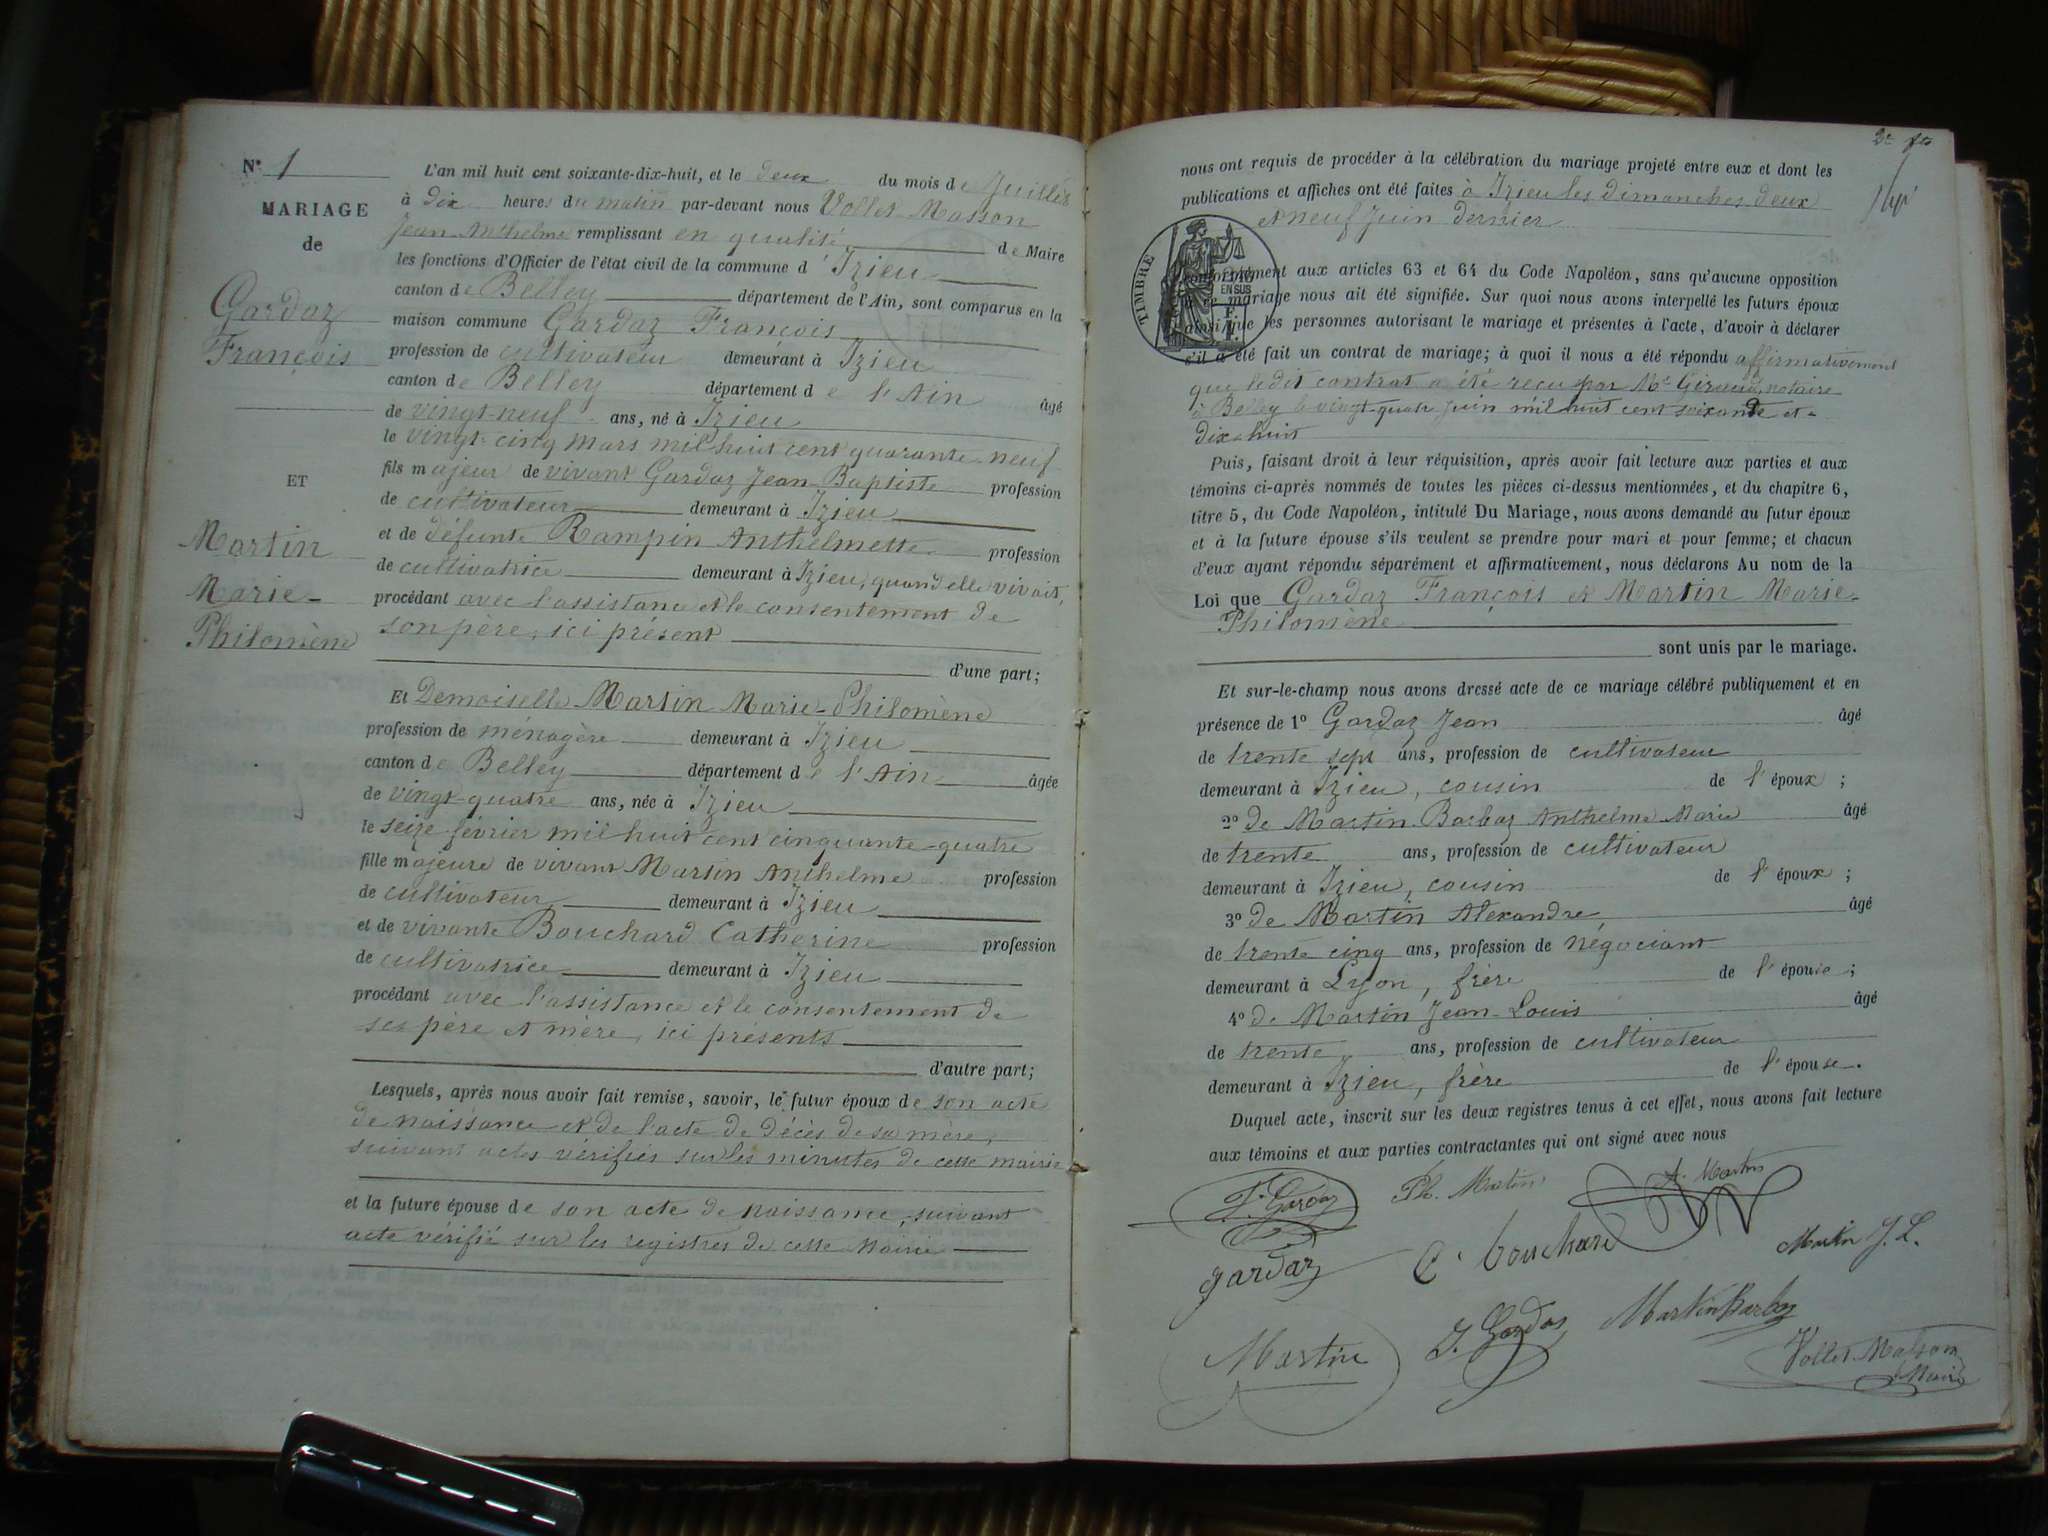 N° 1
MARIAGE
de
Gardaz
François
ET
Martin
Marie-
Philomène
L'an mil huit cent soixante-dix-huit, et le deux du mois de Juillet
à dix heures du matin par-devant nous Vollet-Masson
Jean Anthelme remplissant en qualité de Maire
les fonctions d'Officier de l'état civil de la commune d'Izieu
canton de Belley département de l'Ain, sont comparus en la
maison commune Gardaz François
profession de cultivateur demeurant à Izieu
canton de Belley département de l'Ain âgé
de vingt-neuf ans, né à Izieu
le vingt-cinq mars mil huit cent quarante-neuf
fils majeur de vivant Gardaz Jean-Baptiste profession
de cultivateur demeurant à Izieu
et de défunte Rampin Anthelmette profession
de cultivatrice demeurant à Izieu, quand elle vivait,
procédant avec l'assistance et le consentement de
son père, ici présent
d'une part;
Et Demoiselle Martin Marie-Philomène
profession de ménagère demeurant à Izieu
canton de Belley département de l'Ain âgée
de vingt-quatre ans, née à Izieu
le seize février mil huit cent cinquante-quatre
fille majeure de vivant Martin Anthelme profession
de cultivateur demeurant à Izieu
et de vivante Bouchard Catherine profession
de cultivatrice demeurant à Izieu
procédant avec l'assistance et le consentement de
ses père et mère, ici présents
d'autre part;
Lesquels, après nous avoir fait remise, savoir, le futur époux de son acte
de naissance et de l'acte de décès de sa mère,
suivant actes vérifiés sur les minutes de cette mairie
et la future épouse de son acte de naissance, suivant
acte vérifié sur les registres de cette Mairie
nous ont requis de procéder à la célébration du mariage projeté entre eux et dont les
publications et affiches ont été faites à Izieu les dimanches deux
et neuf Juin dernier
TIMBRE
EN SUS
conformément aux articles 63 et 64 du Code Napoléon, sans qu'aucune opposition
à ce mariage nous ait été signifiée. Sur quoi nous avons interpellé les futurs époux
ainsi que les personnes autorisant le mariage et présentes à l'acte, d'avoir à déclarer
s'il a été fait un contrat de mariage; à quoi il nous a été répondu affirmativement
que le dit contrat a été reçu par Me Giraud, notaire
à Belley le vingt-quatre juin mil huit cent soixante et-
dix-huit
Puis, faisant droit à leur réquisition, après avoir fait lecture aux parties et aux
témoins ci-après nommés de toutes les pièces ci-dessus mentionnées, et du chapitre 6,
titre 5, du Code Napoléon, intitulé Du Mariage, nous avons demandé au futur époux
et à la future épouse s'ils veulent se prendre pour mari et pour femme; et chacun
d'eux ayant répondu séparément et affirmativement, nous déclarons Au nom de la
Loi que Gardaz François et Martin Marie-
Philomène
sont unis par le mariage.
Et sur-le-champ nous avons dressé acte de ce mariage célébré publiquement et en
présence de 1° Gardaz Jean âgé
de trente sept ans, profession de cultivateur
demeurant à Izieu, cousin de l'époux;
2° de Martin-Barbaz Anthelme Marie âgé
de trente ans, profession de cultivateur
demeurant à Izieu, cousin de l'époux;
3° de Martin Alexandre âgé
de trente cinq ans, profession de négociant
demeurant à Lyon, frère de l'épouse;
4° de Martin Jean-Louis âgé
de trente ans, profession de cultivateur
demeurant à Izieu, frère de l'épouse.
Duquel acte, inscrit sur les deux registres tenus à cet effet, nous avons fait lecture
aux témoins et aux parties contractantes qui ont signé avec nous
F. Gardaz Ph. Martin A. Martin
gardaz C. bouchard Martin J. L.
Martin J. Gardaz Martin Barbaz
Vollet-Masson
Maire